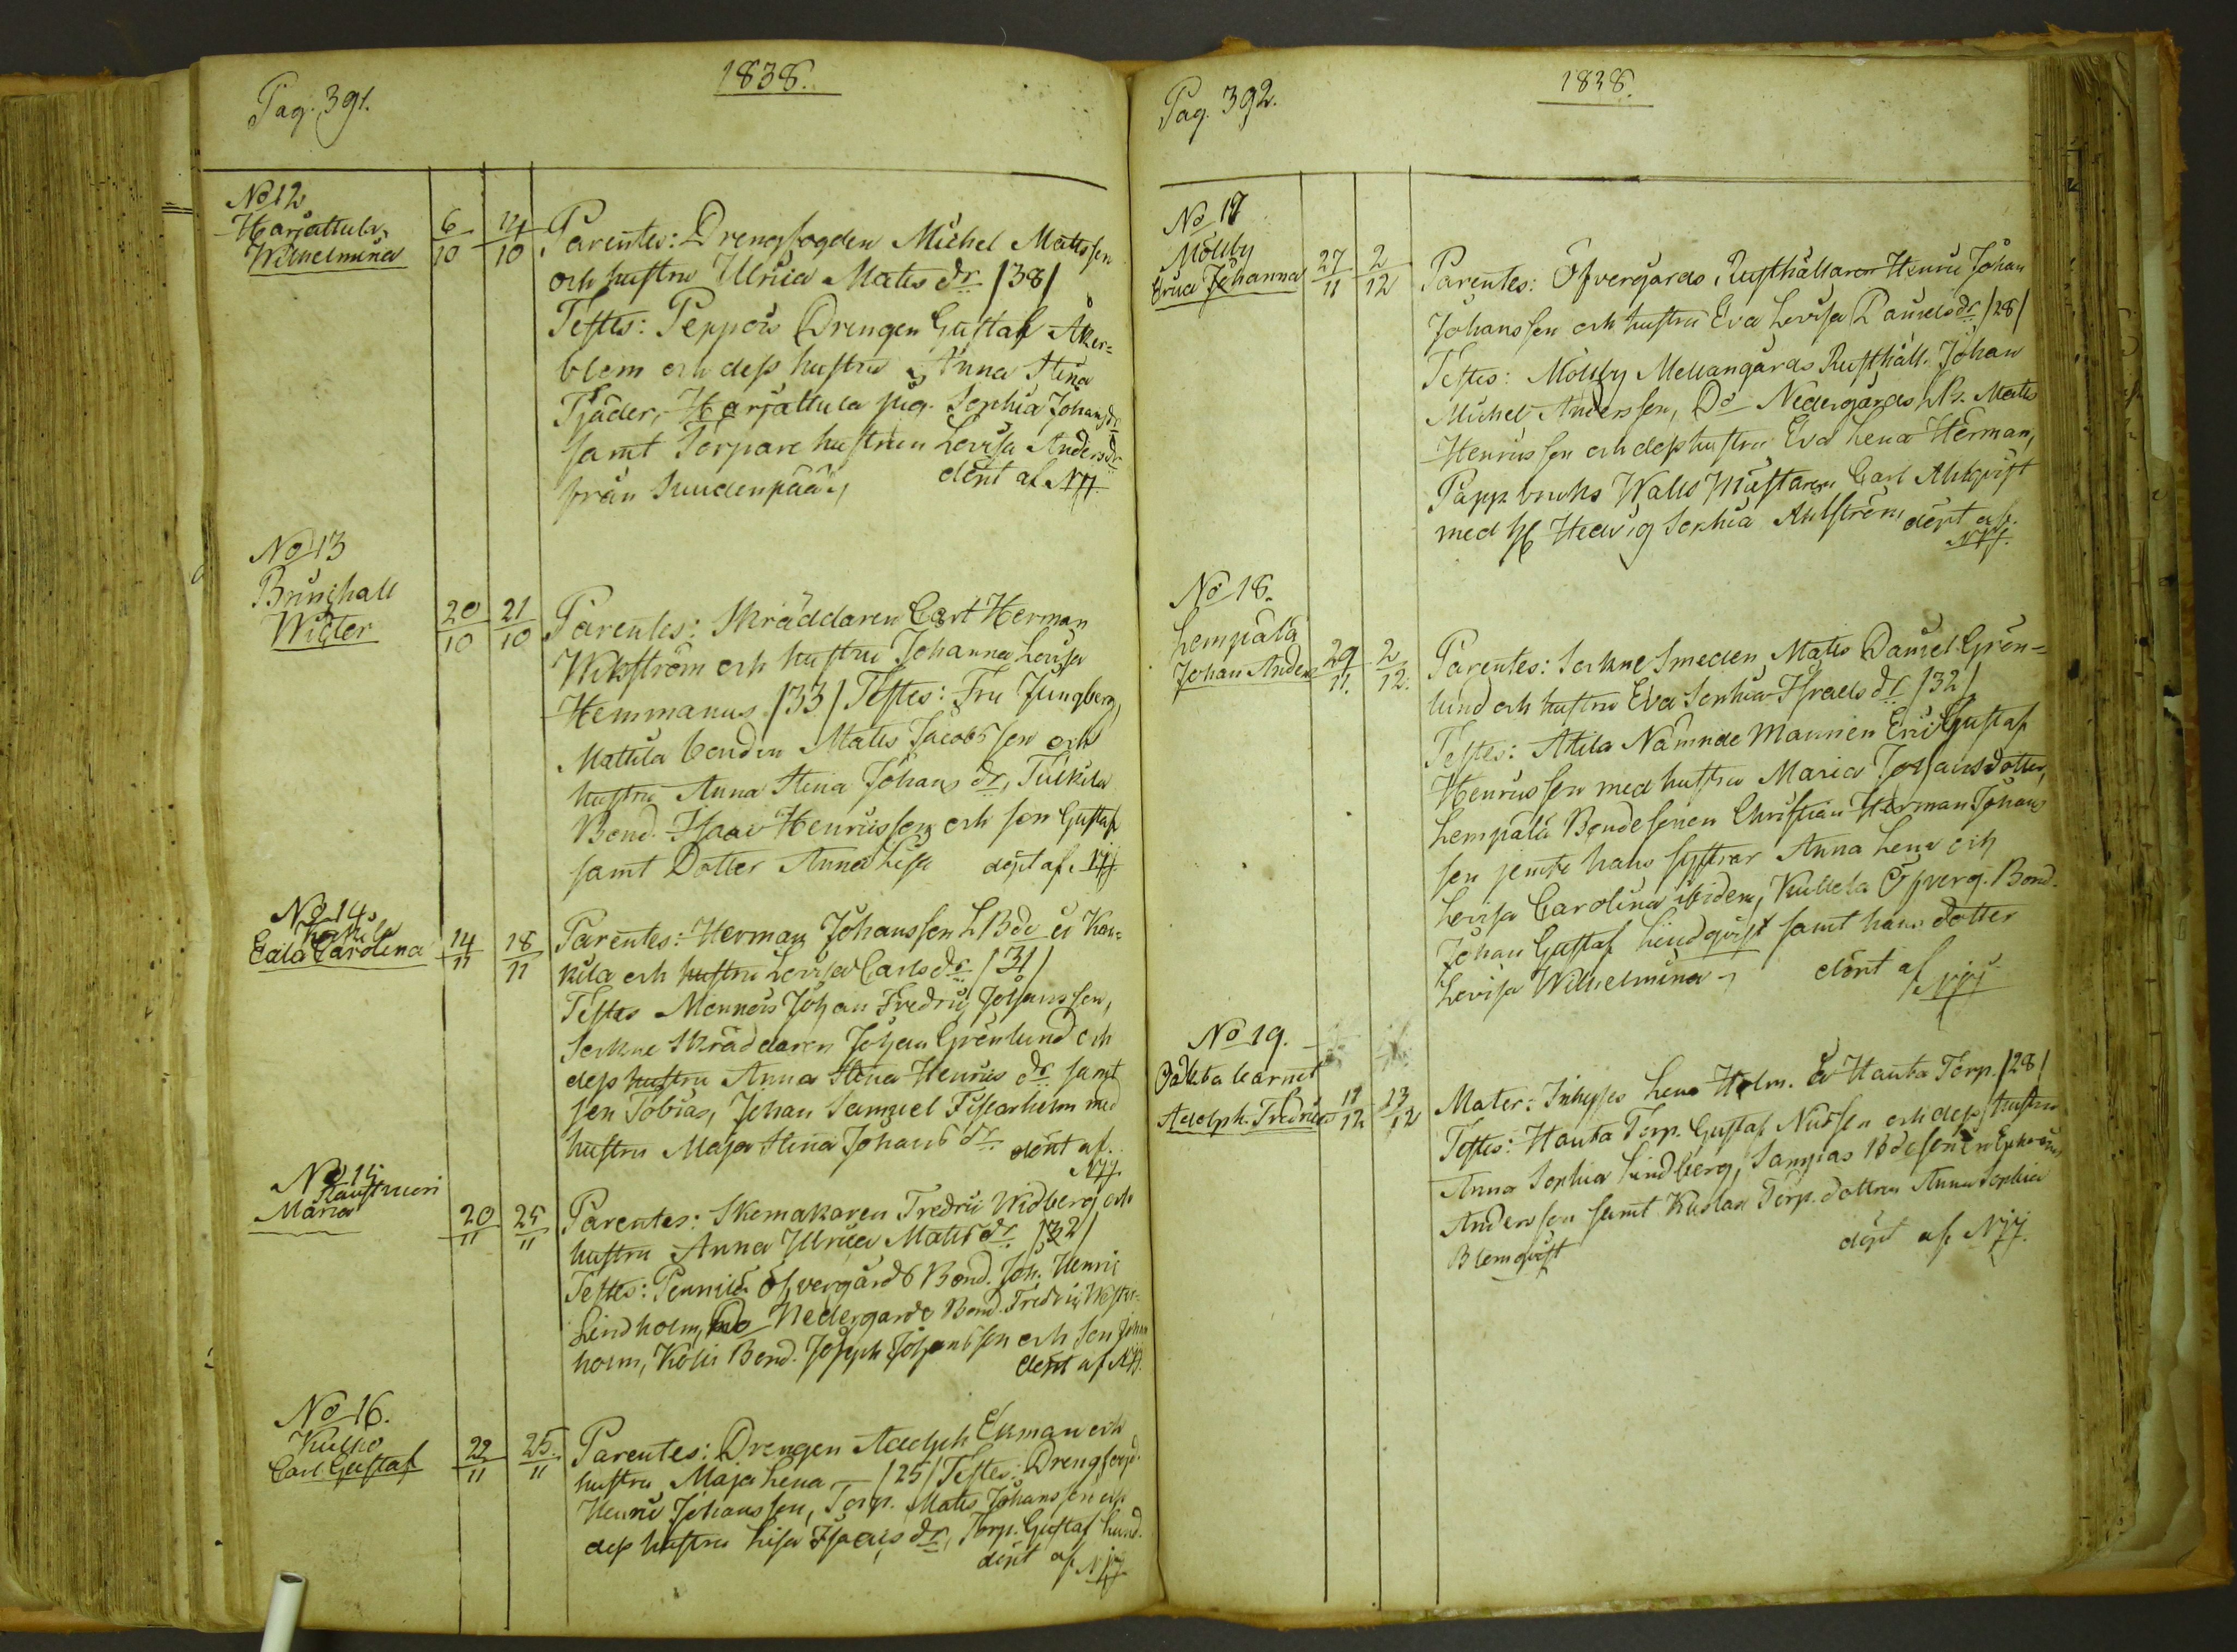 Pag. 391.
1838.
No 12
Harjattula,
Wilhelmina
6/10
14/10
Parentes: Drengfogden Michel Matsson
och hustru Ulrica Mats dr /38/
Testes: Peppois Drengen Gustaf Åker=
blom och dess hustru Anna Stina
Tjäder, Harjattula pig. Sophia Johans dr
samt Torpare hustrun Lovisa Anders dr
från Suudenpää,
döpt af
No 13
Brinkhall
Victor
20/10
21/10
Parentes: Skräddaren Carl Herman
Wikström och hustru Johanna Lovisa
Hemmanus /33/ Testes: Fru Jungberg,
Mattila bonden Mats Jacobsson och
hustru Anna Stina Johans dr, Tulkila
Bond. Isaac Henricsson och son Gustaf
samt Dotter Anna Lisa döpt af
No 14.
Eila Carolina
14/11
18/11
Parentes: Herman Johansson
kila och hustru Lovisa Carls dr /31/
Testes Mennois Johan Fredric Johansson,
Sorkne Skräddaren Johan Grönlund och
dess hustru Anna Stina Henrics dr samt
son Tobias, Johan Samuel Fiskarholm med
hustru Maja Stina Johans dr döpt af.
No 15
Maria
20/11
25/11
Parentes: Skomakaren Fredric Widberg och
hustru Anna Ulrica Mats dr /32/
Testes: Pennilä Öfvergårds Bond. Joh. Henric
Lindholm, Do Nedergårds Bond. Fredric Wester=
holm, Kolis Bond. Joseph Johansson och son Johan
döpt af
No 16.
Kulho
Carl Gustaf
22/11
25/11
Parentes: Drengen Adolph Ekman och
hustru Maja Lena — /25/ Testes:
Henric Johansson, Torp. Mats Johansson och
dess hustru Lisa Isaacs dr, Torp. Gustaf Lund.
döpt af
Pag. 392.
1838.
No 17
Möllby
Erica Johanna
27/11
2/12
Parentes: Öfvergårds Rusthållaren Henric Johan
Johansson och hustru Eva Lovisa Daniels dr /28/
Testes: Möllby Mellangårds Rusthåll. Johan
Michel Andersson, Do Nedergårds Mats
Henricsson och dess hustru Eva Lena Herman,
Papp bruks Walts Mästaren Carl Ahlqvist
med H Hedvig Sophia Ahlström, döpt af
No 18.
Lempälä
Johan Anders
29/11.
2/12.
Parentes: Sorkne Smeden Mats Daniel Grön=
lund och hustru Eva Sophia Israels dr /32/
Testes: Attila Nämnde Mannen Eric Gustaf
Henricsson med hustru Maria Johansdotter,
Lempälä Bondesonen Christian Herman Johans
son jemte hans systrar Anna Lena och
Lovisa Carolina ibidem, Kullela Öfverg. Bond.
Johan Gustaf Lindqvist samt hans dotter
Lovisa Wilhelmina döpt af
No 19.
Adolph Fredric
11/12
13/12
Mater: Inhyses Lena Holm. à Hanta Torp. /28/
Testes: Hanta Torp. Gustaf Nilsson och dess hustru
Anna Sophia Lindberg,
Andersson samt Torp. dottren Anna Sophia
Blomqvist
döpt af